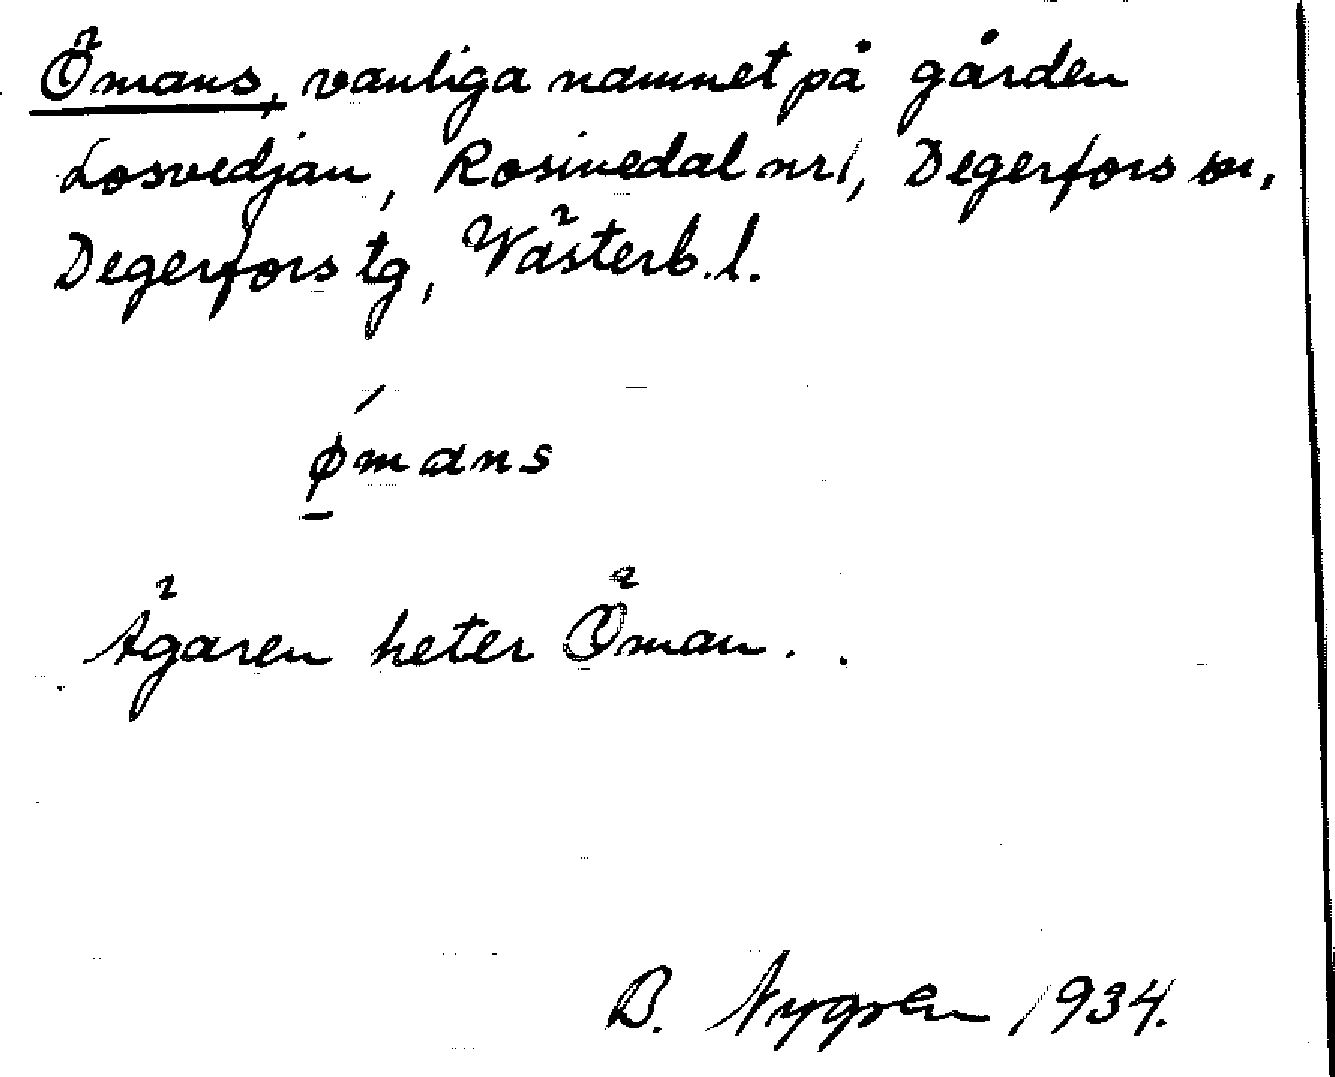 Ömans, vanliga namnet på gården
Losvedjan, Rosinedal nr 1, Degerfors sn,
Degerfors tg, Västerb. l.
ǿmans
Ägaren heter Öman.
B. Nygren 1934.